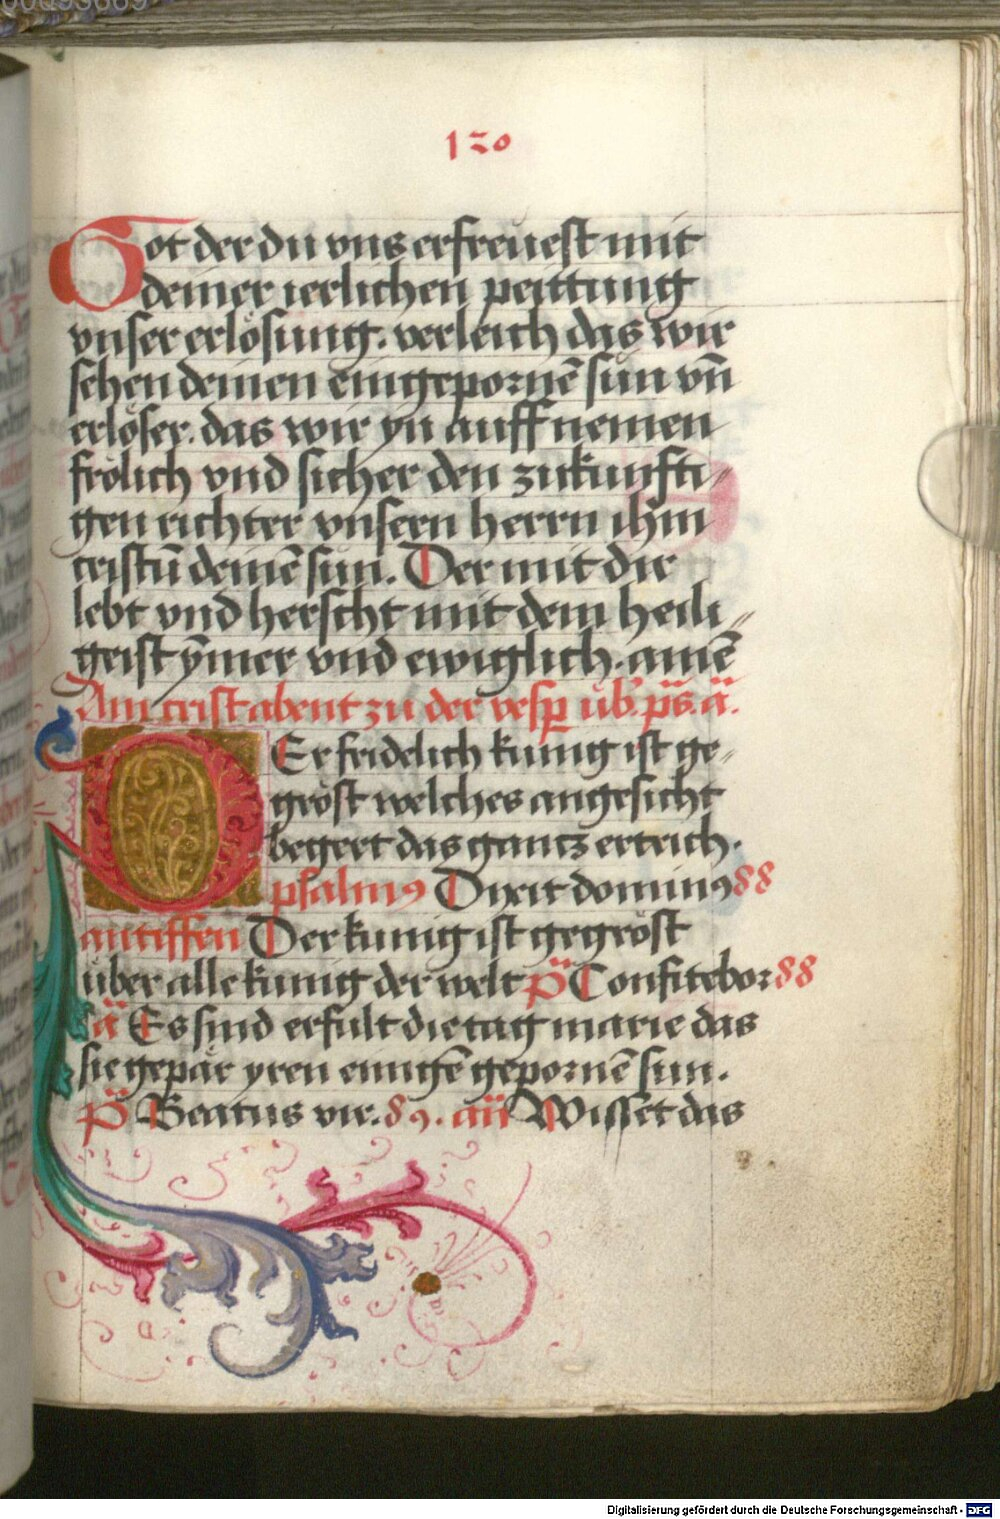 130
Got der du vns erfreuest mit
deiner ierlichen peittung
vnser erlösung. verleich das wir
sehen deinen eingepornē sun vn̄
erlöser. das wir yn auff nemen
frölich vnd sicher den zukunfti⸗
gen richter vnsern herrn ihm̄
cristū deinē sun. Der mit dir
lebt vnd herscht mit dem heili⸗
geist ÿmer vnd ewiglich. amē
Am crist abent zu der vesp̄ üb. ps. ā.
DEr fridelich kunig ist ge⸗
gröst welches angesicht
begert das gantz ertrich.
psalmꝰ Dixit dominꝰ 88
antiffen Der kunig ist gegröst
über alle kunig der welt p̄ Confitebor 88
ā Es sind erfült die tag marie das
sie gepär yren einigē gepornē sun.
p̄ Beatus vir. 89. an̄ Wissēt das
Digitalisierung gefördert durch die Deutsche Forschungsgemeinschaft - DFG